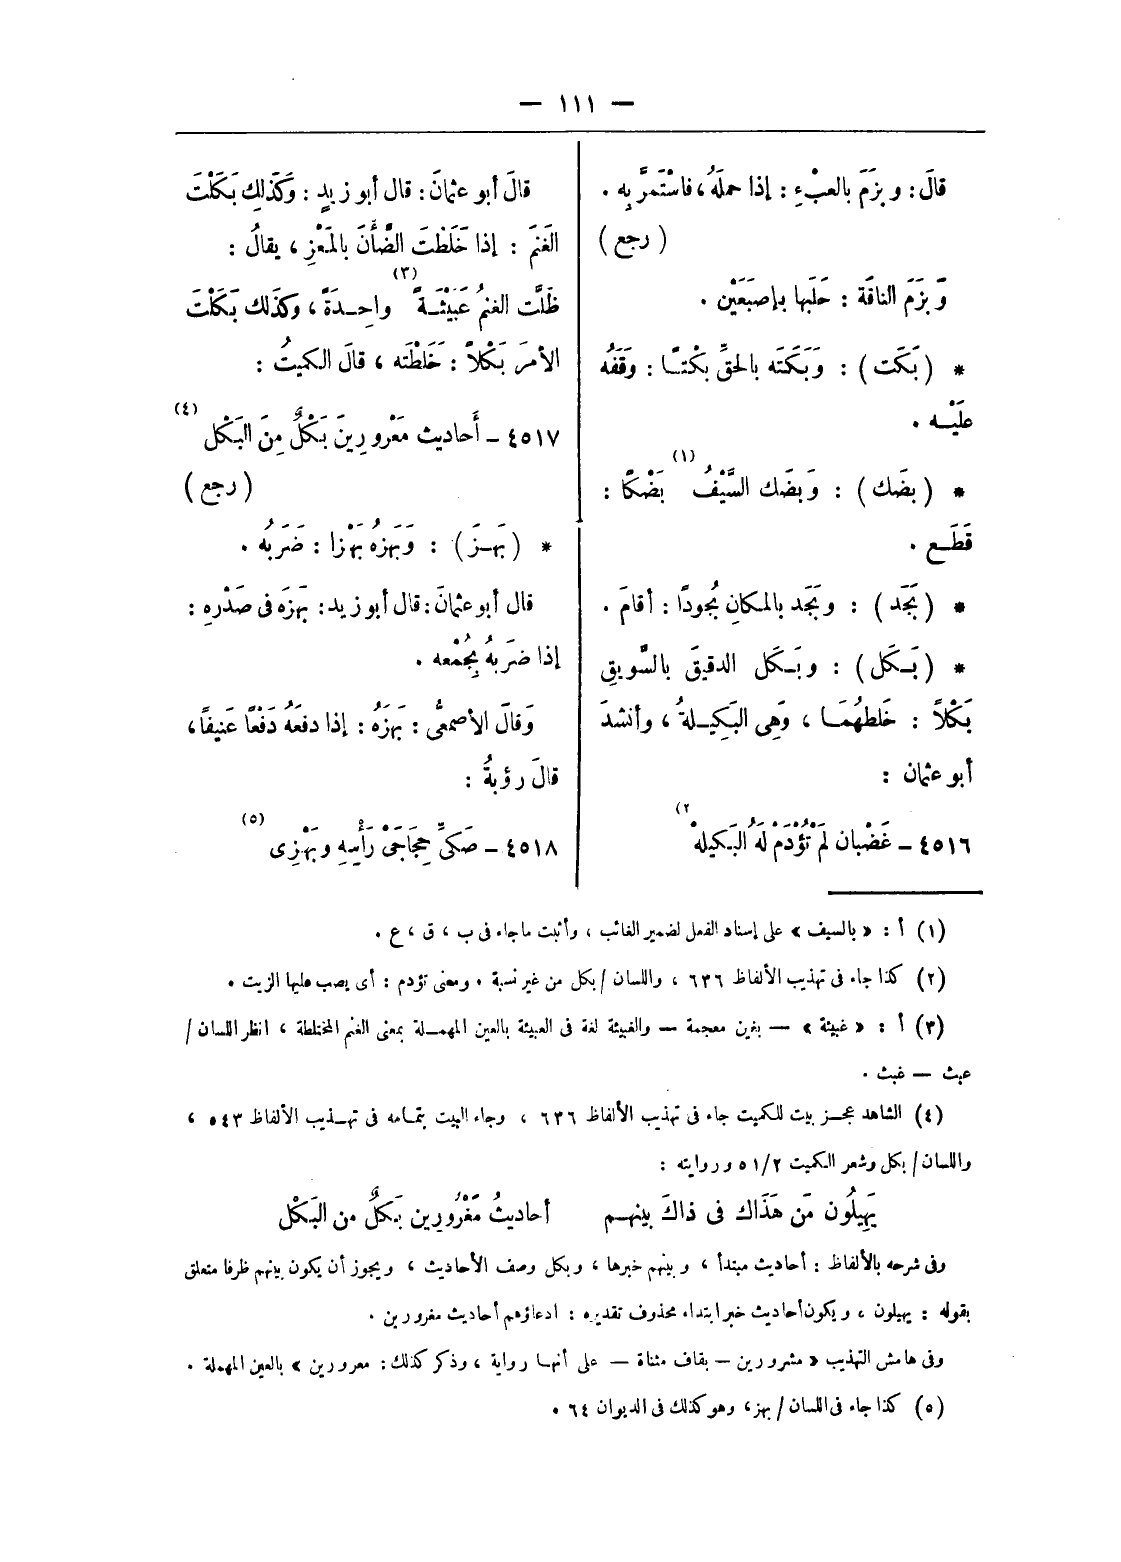 — ١١١ —
قالَ: وبزَمَ بالعبْءِ: إذا حملَهُ، فاسْتَمرَّ بِه.
(رجع)
وَبزَمَ الناقَة: حَلَبها بإصبَعَيْن.
* (بَكَت): وَبَكَتَه بالحقِّ بكْتًا: وَقَفَهُ
علَيْه.
* (بضَك): وَبضَك السَّيْفُ (١) بَضْكًا:
قَطَع.
* (بَجَد): وبَجَد بالمكانِ بُجودًا: أقامَ.
* (بَكَل): وبَكَل الدقيقَ بالسَّويقِ
بَكْلاً: خَلطهُمَا، وَهِى البَكِيلةُ، وأنشدَ
أبو عثمان:
٤٥١٦ – غَضْبان لَمْ تُؤْدَمْ لَهُ البَكيلهْ (٢)
قالَ أبو عثمانَ: قال أبو زيدٍ: وَكَذلِك بَكَلْتَ
الغَنَمَ: إذا خَلَطْتَ الضَّأنَ بالمَعْزِ، يقالُ:
ظَلَّت الغنمُ عَبَيْثَةً (٣) واحِدَةً، وكذَلك بَكَلْتَ
الأمرَ بَكْلاً: خَلطْتَه، قالَ الكميتُ:
٤٥١٧ – أَحاديث مَغْرورِينَ بَكْلٌ مِنَ البَكْل (٤)
(رجع)
* (بَهَزَ): وَبَهزهُ بَهْزا: ضَرَبُه.
قال أبو عثمانَ: قال أبو زيد: بَهزَه فى صَدْرِهِ:
إذا ضرَبهُ بِجُمْعه.
وَقالَ الأصمعىُّ: بَهزَهُ: إذا دفعَهُ دَفْعًا عَنيفًا،
قالَ رؤبةُ:
٤٥١٨ – صَكىِّ حِجَاجَىْ رَأْسِهِ وبَهْزِى (٥)
(١) أ: «بالسيف» على إسناد الفعل لضمير الغائب، وأثبت ما جاء فى ب، ق، ع.
(٢) كذا جاء فى تهذيب الألفاظ ٦٣٦، واللسان / بكل من غير نسبة. ومعنى تؤدم: أى يصب عليها الزيت.
(٣) أ: «غبيثة» — بغين معجمة — والغبيثة لغة فى العبيثة بالعين المهملة بمعنى الغنم المختلطة، انظر اللسان/
عبث — غبث.
(٤) الشاهد عجز بيت للكميت جاء فى تهذيب الألفاظ ٦٣٦، وجاء البيت بتمامه فى تهذيب الألفاظ ٥٤٣،
واللسان / بكل وشعر الكميت ٥١/٢ وروايته:
يَهِيلُون مَن هَذَاك فى ذاكَ بينهم أحاديثُ مَغْرُورِين بَكلٌ من البَكْل
وفى شرحه بالألفاظ: أحاديث مبتدأ، وبينهم خبرها، وبكل وصف الأحاديث، ويجوز أن يكون بينهم ظرفا متعلق
بقوله: يهيلون، ويكون أحاديث خبر ابتداء محذوف تقديره: ادعاؤهم أحاديث مغرورين.
وفى هامش التهذيب «مشرورين – بقاف مثناة – على أنها رواية، وذكر كذلك: معرورين» بالعين المهملة.
(٥) كذا جاء فى اللسان / بهز، وهو كذلك فى الديوان ٦٤.